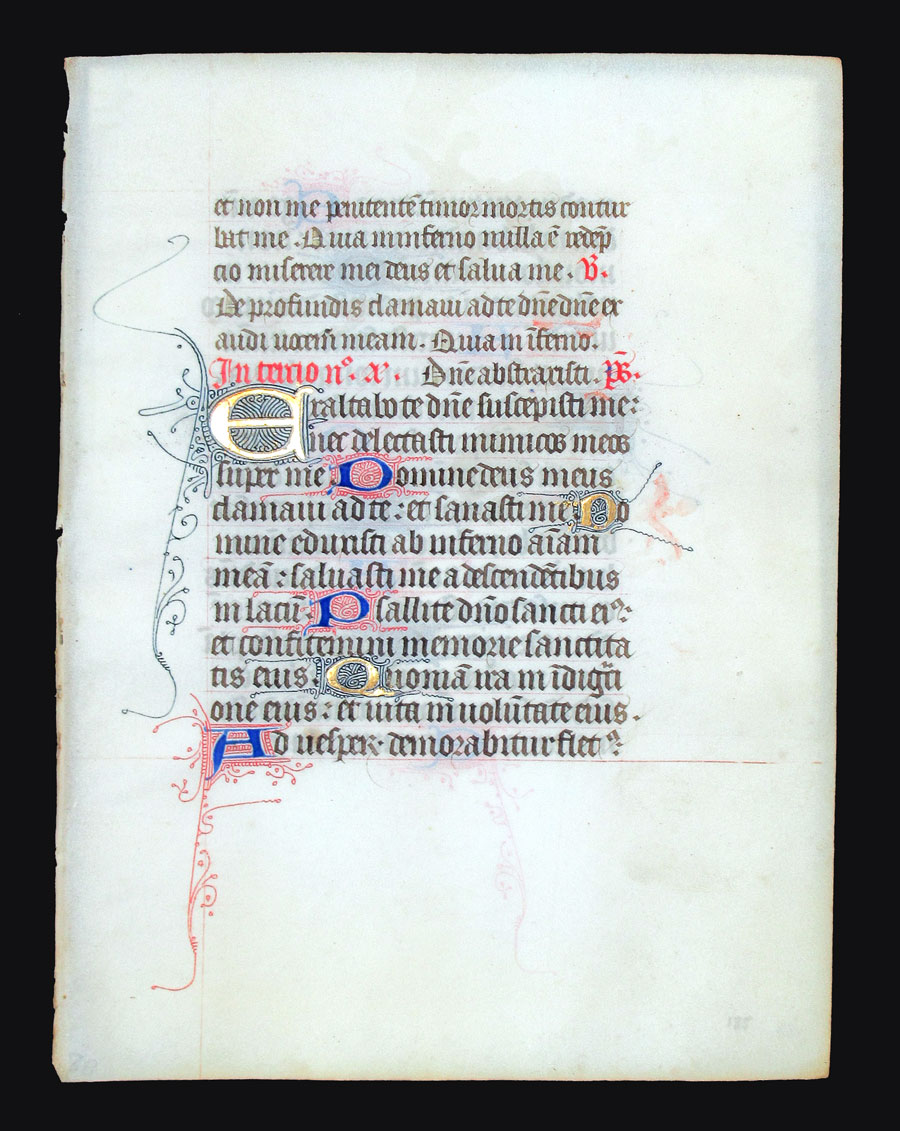 et non me penitente͂ timor mortis contur
bat me. Quia in inferno nulla e͂ rede͂p
cio miserere mei deus et salua me. V.
De profundis clamaui ad te dn͂e dn͂e ex
audi uocem meam. Quia in i͂ferno.
In tercio n°. x. Dn͂e abstraxisti. ps͂.
Exaltabo te dn͂e suscepisti me:
nec delectasti inimicos meos
super me Domine deus meus
clamaui ad te: et sanasti me Do
mine eduxisti ab inferno ai͂am
mea͂: saluasti me a descende͂tibus
in lacu͂. Psallite dn͂o sancti ei⁹:
et confitemini memorie sanctita
tis eius. Quonia͂ ira in i͂dig͂ti
one eius: et uita in uolu͂tate eius.
Ad uesper demorabitur flet⁹:
185